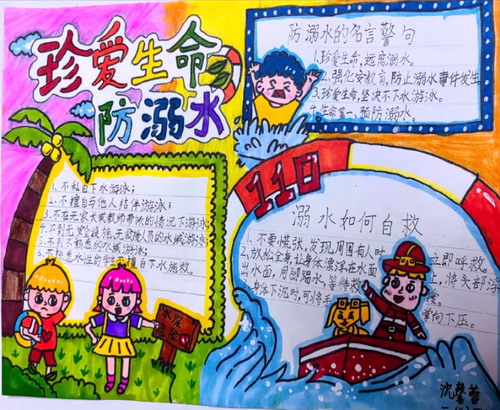 珍爱生命
防溺水
防溺水的名言警句
1.珍爱生命,远离溺水。
2.强化安教育,防止溺水事件发生
3.珍爱生命,坚决不下水游泳。
预防溺水。
1.不私自下水游泳;
2.不擅自与他人结伴游泳;
3.不在无家长或教师带领的情况下游泳;
4.不到无安全设施、无救援人员的水域游泳;
5.不到不熟悉的水域游泳;
不熟悉水性的学生不擅自下水施救。
110
溺水如何自救
1.不要慌张,发现周围有人时立即呼救。
2.放松全身,让身体漂浮在水面上,将头部浮
出水面,用脚踢水,等待救援。
身体下沉时,可将手掌向下压。
水深危险
沈馨蓉